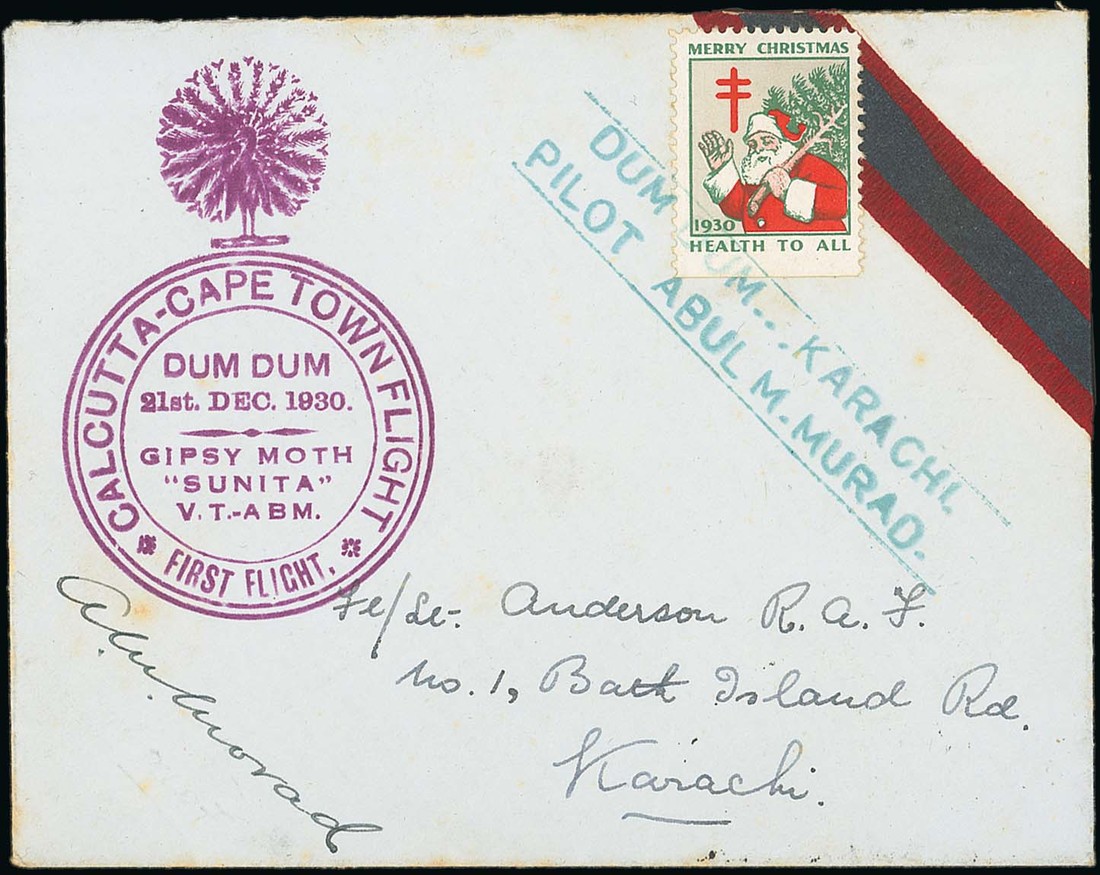 CALCUTTA-CAPE TOWN FLIGHT
DUM DUM
21st. DEC. 1930.
GIPSY MOTH
"SUNITA"
V.T.-ABM.
FIRST FLIGHT.
MERRY CHRISTMAS
1930
HEALTH TO ALL
DUM DUM... KARACHI.
PILOT ABUL M. MURAD.
Fl/Le-. Anderson R.A.F.
No. 1, Bath Island Rd.
Karachi.
A.M. Morad